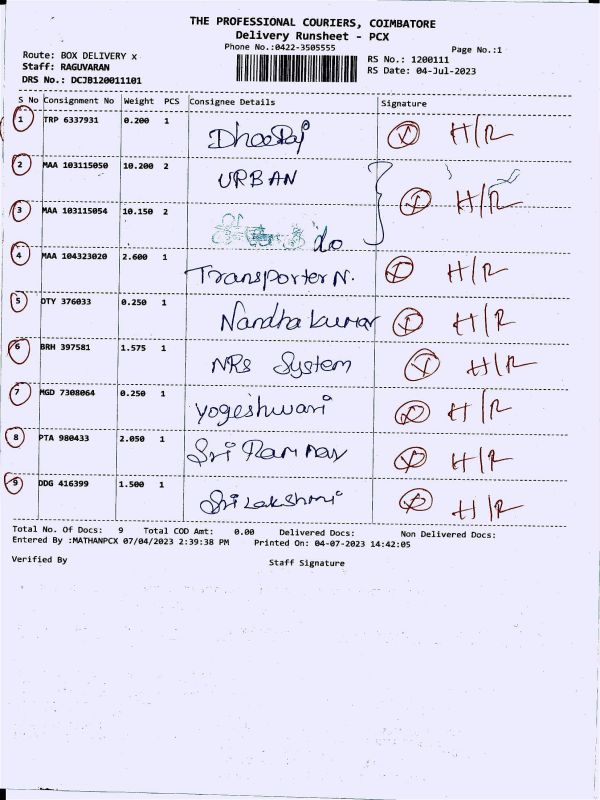 THE PROFESSIONAL COURIERS, COIMBATORE
Delivery Runsheet - PCX
Phone No.:0422-3505555
Page No.:1
Route: BOX DELIVERY x
Staff: RAGUVARAN
DRS No.: DCJB120011101
RS No.: 1200111
RS Date: 04-Jul-2023
S No Consignment No Weight PCS Consignee Details Signature
1 TRP 6337931 0.200 1 Dhooraj H/R
2 MAA 103115050 10.200 2 URBAN H/R
3 MAA 103115054 10.150 2 do
4 MAA 104323020 2.600 1 Transporter N. H/R
5 OTY 376033 0.250 1 Nandha kumar H/R
6 BRH 397581 1.575 1 NRS System H/R
7 MGD 7308064 0.250 1 yogeshwari H/R
8 PTA 980433 2.050 1 Sri H/R
9 DDG 416399 1.500 1 Sri Lakshmi H/R
Total No. Of Docs: 9 Total COD Amt: 0.00 Delivered Docs: Non Delivered Docs:
Entered By :MATHANPCX 07/04/2023 2:39:38 PM Printed On: 04-07-2023 14:42:05
Verified By
Staff Signature